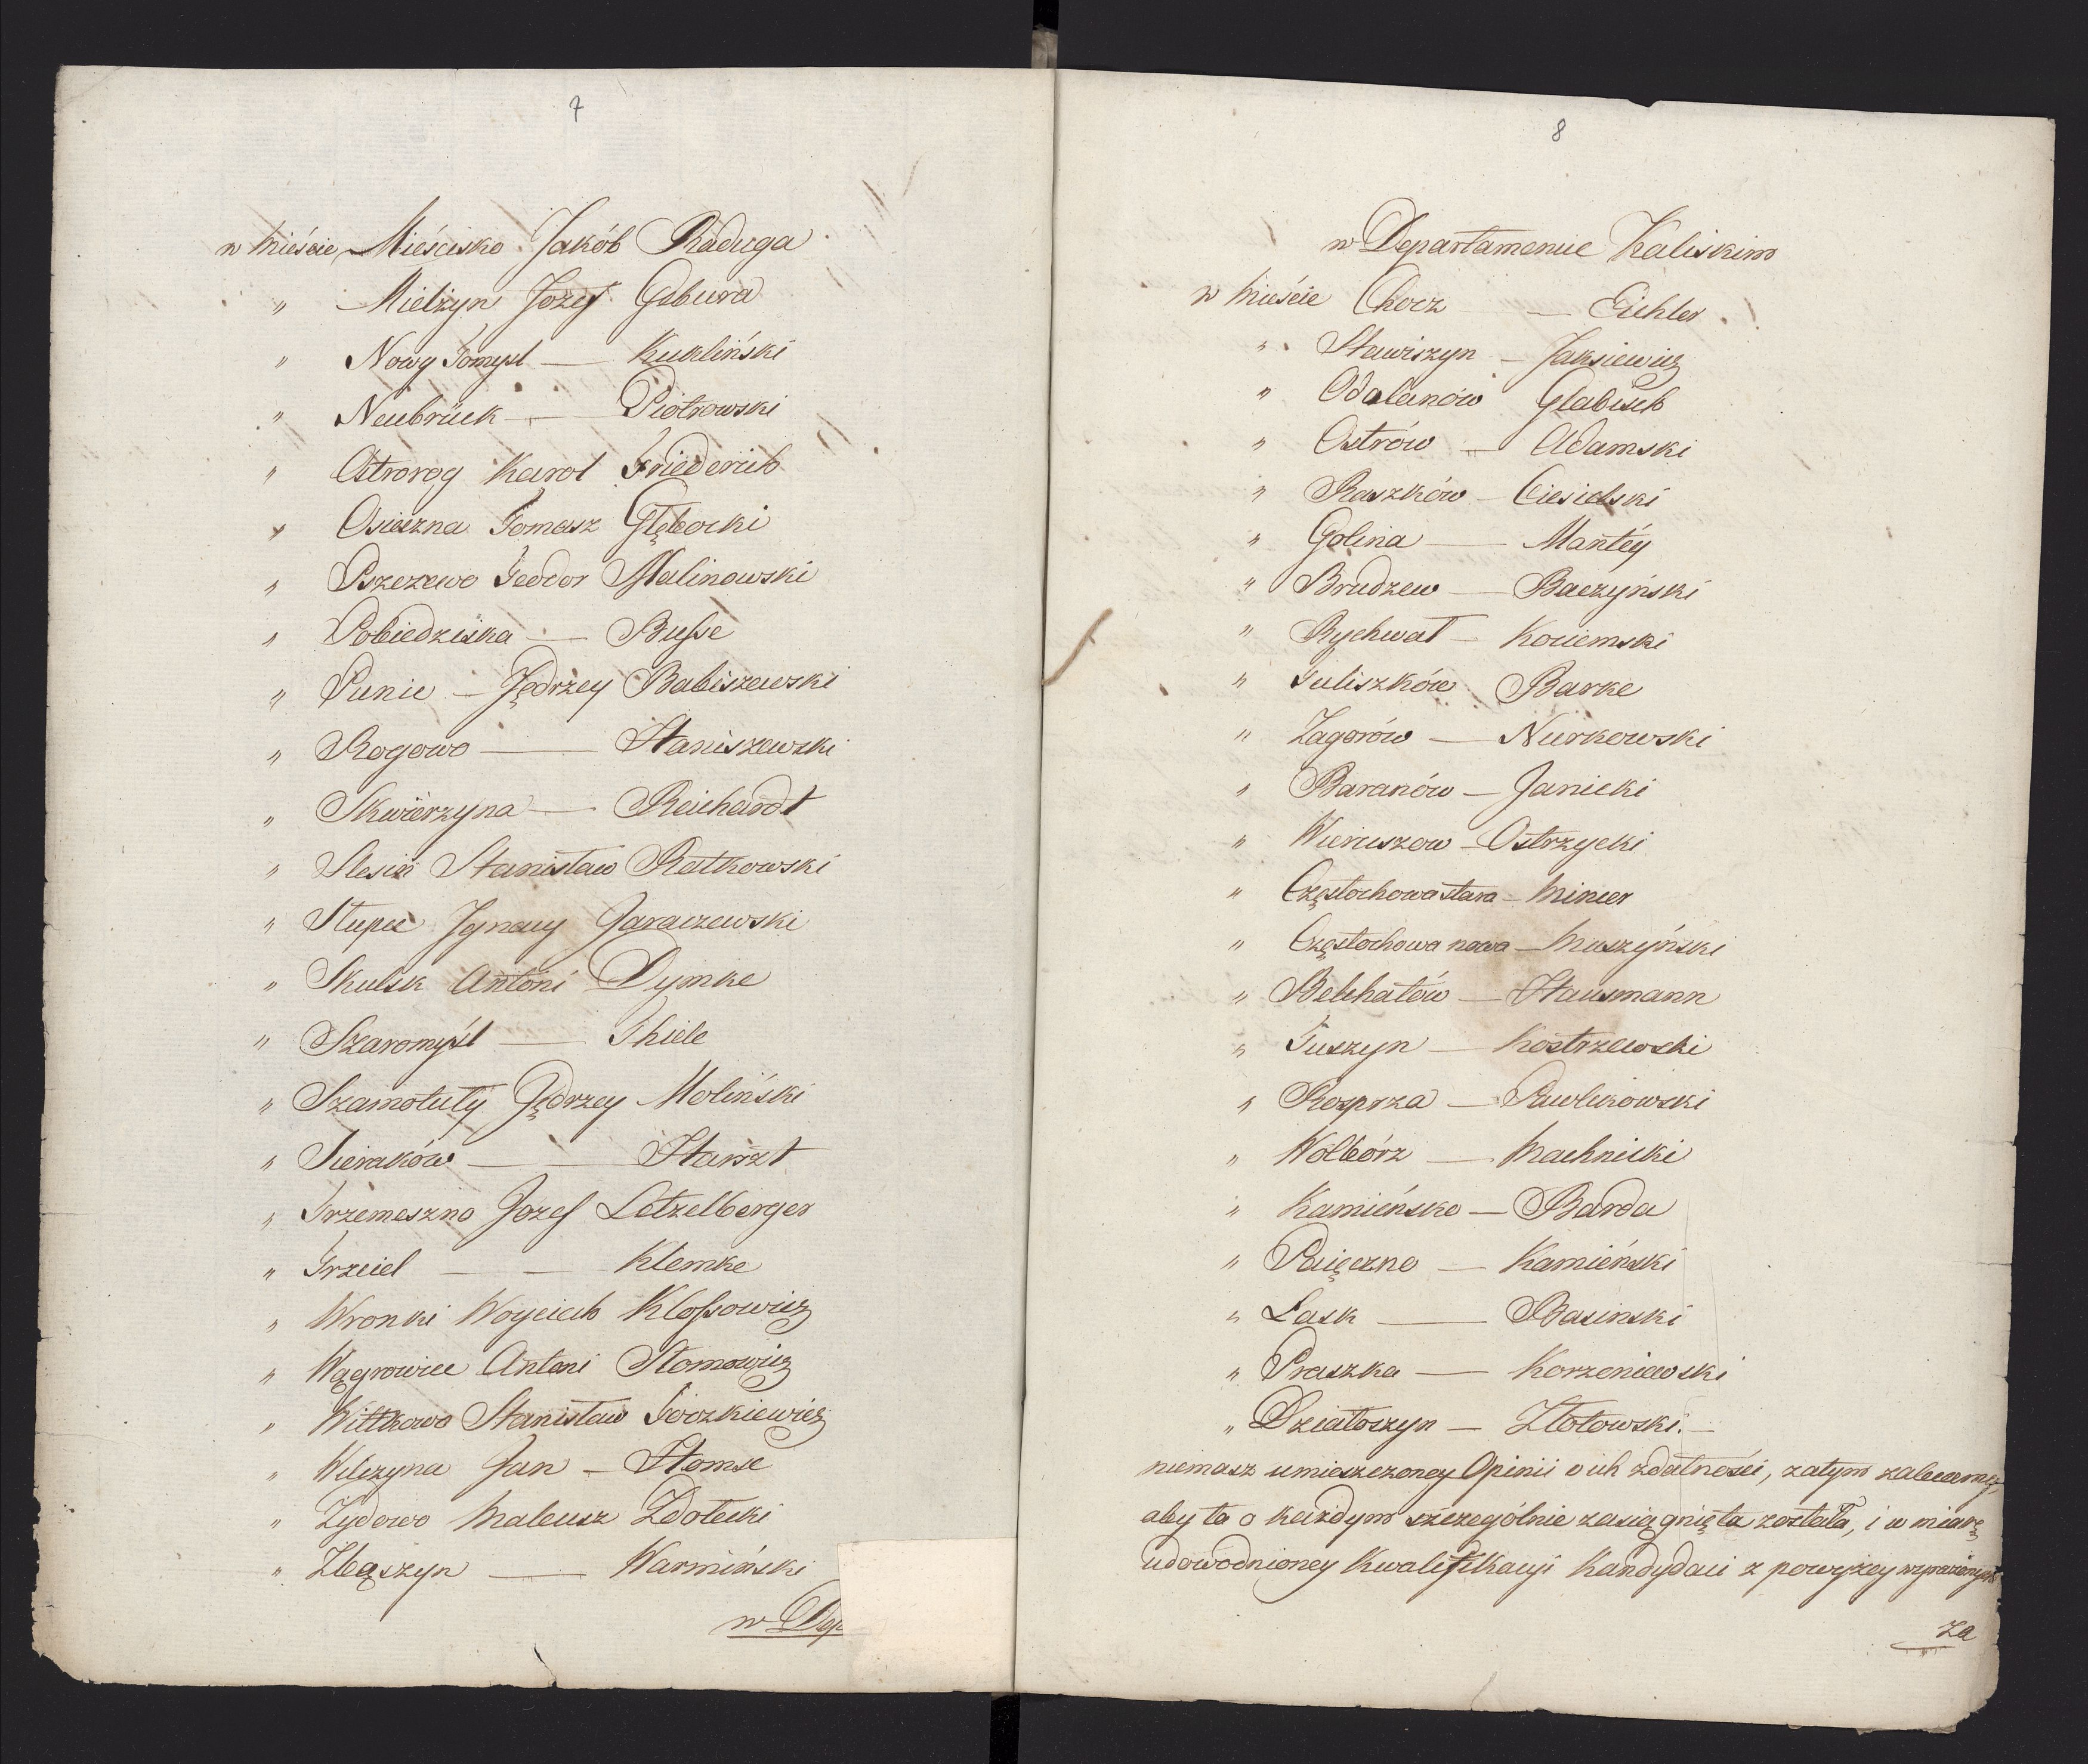 7
w Mieście Mieścisko Jakób Raduga
" Mielżyn Jozef Gabura
" Nowy Tomysl — Kukliński
" Neubrück — Piotrowski
" Ostrorog Karol Friederich
" Osieczna Tomasz Głębocki
" Pszczewo Teodor Malinowski
" Pobiedziska — Busse
" Punic — Jędrzey Babiszewski
" Rogowo — Staniszewski
" Skwierzyna — Reichardt
" Slesin Stanisław Ratkowski
" Słupce Ignacy Garaczewski
" Skulsk Antoni Dymke
" Szaromyśl — Thiele
" Szamotuły Jędrzey Moliński
" Sieraków — Starszt
" Trzemeszno Jozef Letzelberger
" Trzciel — — Klemke
" Wronki Woyciech Klossowicz
" Wągrowiec Antoni Słomowicz
" Wittkowo Stanisław Toczkiewicz
" Wilczyna Jan — Słomse
" Zydowo Mateusz Zdołecki
" Zbąszyn — Warmiński
w Dep
8
w Departamencie Kaliskim
w Mieście Chocz — Eichler
" Stawiszyn — Jaksiewicz
" Odalanów Glabisch
" Ostrów — Adamski
" Raszków — Ciesielski
" Golina — Mantey
" Brudzew — Baczyński
" Rychwał — Kociemski
" Tuliszków Barke
" Zagorów — Nurkowski
" Baranów — Janicki
" Wieruszow — Ostrzycki
" Częstochowa stara — Mincer
" Częstochowa nowa — Muszyński
" Belchatów — Hausmann
" Tuszyn — Kostrzewski
" Rosprza — Pawlikowski
" Wolbórz — Machnicki
" Kamieńsko — Barda
" Paięczno — Kamieński
" Łask — Basinski
" Praszka — Korzeniewski
" Działoszyn — Złotowski. —
niemasz umieszczoney Opinii o ich zdatności, zatym zalecamy,
aby ta o każdym szczególnie zasiągnięta została, i w miarę
udowodnioney Kwalifikacyi Kandydaci z powyżey wyrażonych
za